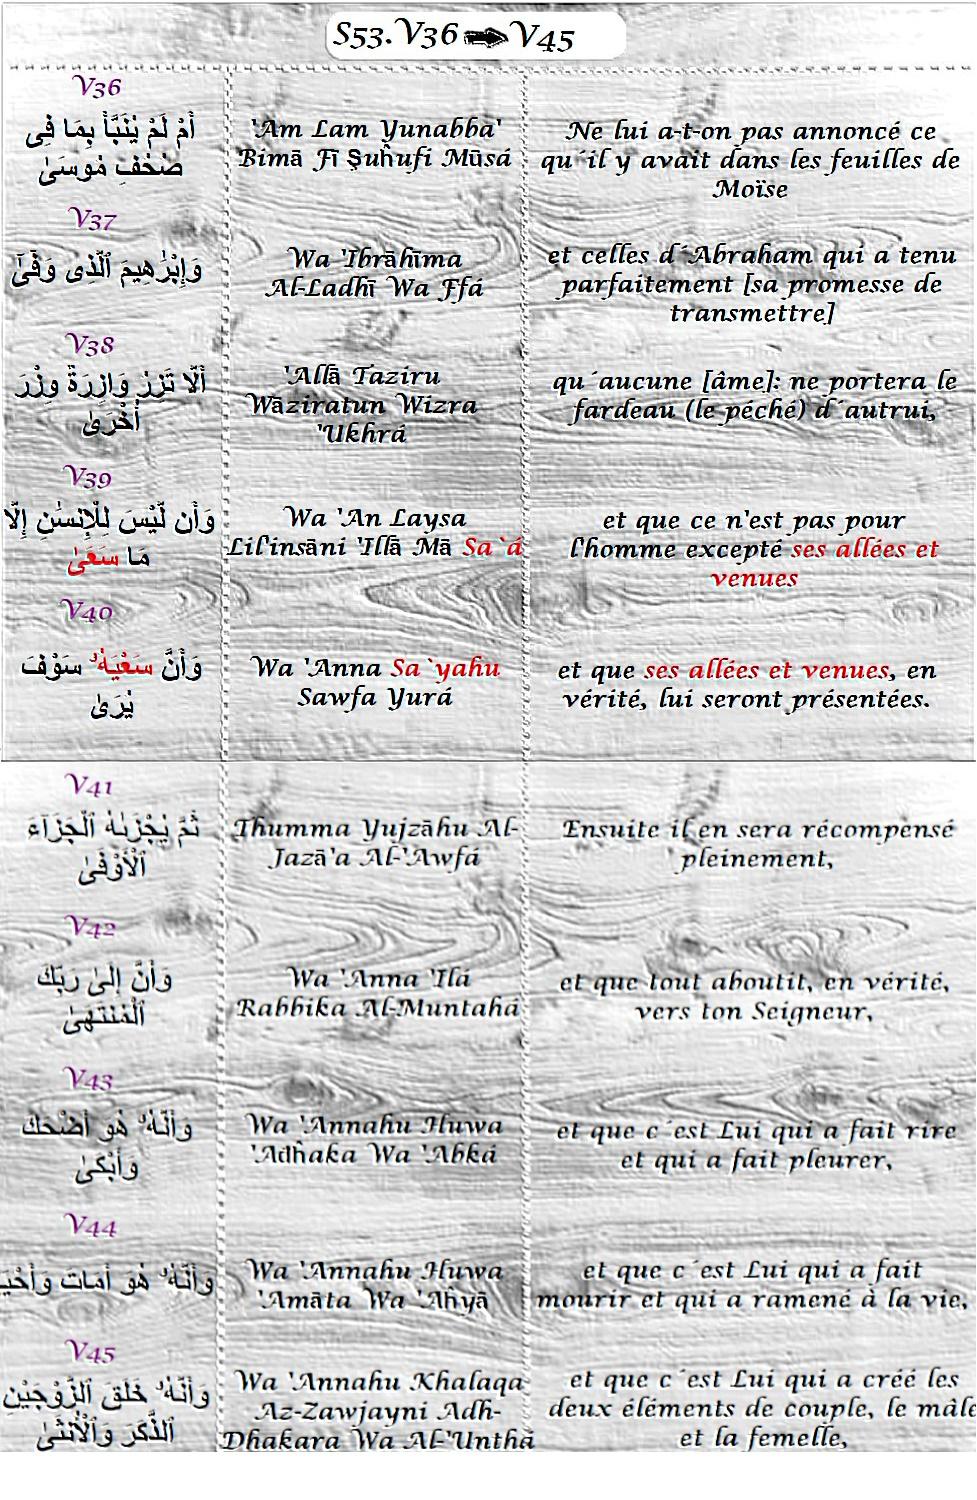 S53.V36 ➡ V45
V36
أَمْ لَمْ يُنَبَّأْ بِمَا فِى
صُحُفِ مُوسَىٰ
'Am Lam Yunabba'
Bimā Fī Şuĥufi Mūsá
Ne lui a-t-on pas annoncé ce
qu´il y avait dans les feuilles de
Moïse
V37
وَإِبْرَٰهِيمَ ٱلَّذِى وَفَّىٰٓ
Wa 'Ibrāhīma
Al-Ladhī Wa Ffá
et celles d´Abraham qui a tenu
parfaitement [sa promesse de
transmettre]
V38
أَلَّا تَزِرُ وَازِرَةٌ وِزْرَ
أُخْرَىٰ
'Allā Taziru
Wāziratun Wizra
'Ukhrá
qu´aucune [âme]: ne portera le
fardeau (le péché) d´autrui,
V39
وَأَن لَّيْسَ لِلْإِنسَٰنِ إِلَّا
مَا سَعَىٰ
Wa 'An Laysa
Lil'insāni 'Illā Mā Sa`á
et que ce n'est pas pour
l'homme excepté ses allées et
venues
V40
وَأَنَّ سَعْيَهُۥ سَوْفَ
يُرَىٰ
Wa 'Anna Sa`yahu
Sawfa Yurá
et que ses allées et venues, en
vérité, lui seront présentées.
V41
ثُمَّ يُجْزَىٰهُ ٱلْجَزَآءَ
ٱلْأَوْفَىٰ
Thumma Yujzāhu Al-
Jazā'a Al-'Awfá
Ensuite il en sera récompensé
pleinement,
V42
وَأَنَّ إِلَىٰ رَبِّكَ
ٱلْمُنتَهَىٰ
Wa 'Anna 'Ilá
Rabbika Al-Muntahá
et que tout aboutit, en vérité,
vers ton Seigneur,
V43
وَأَنَّهُۥ هُوَ أَضْحَكَ
وَأَبْكَىٰ
Wa 'Annahu Huwa
'Ađĥaka Wa 'Abká
et que c´est Lui qui a fait rire
et qui a fait pleurer,
V44
وَأَنَّهُۥ هُوَ أَمَاتَ وَأَحْيَ
Wa 'Annahu Huwa
'Amāta Wa 'Aĥyā
et que c´est Lui qui a fait
mourir et qui a ramené à la vie,
V45
وَأَنَّهُۥ خَلَقَ ٱلزَّوْجَيْنِ
ٱلذَّكَرَ وَٱلْأُنثَىٰ
Wa 'Annahu Khalaqa
Az-Zawjayni Adh-
Dhakara Wa Al-'Unthá
et que c´est Lui qui a créé les
deux éléments de couple, le mâle
et la femelle,